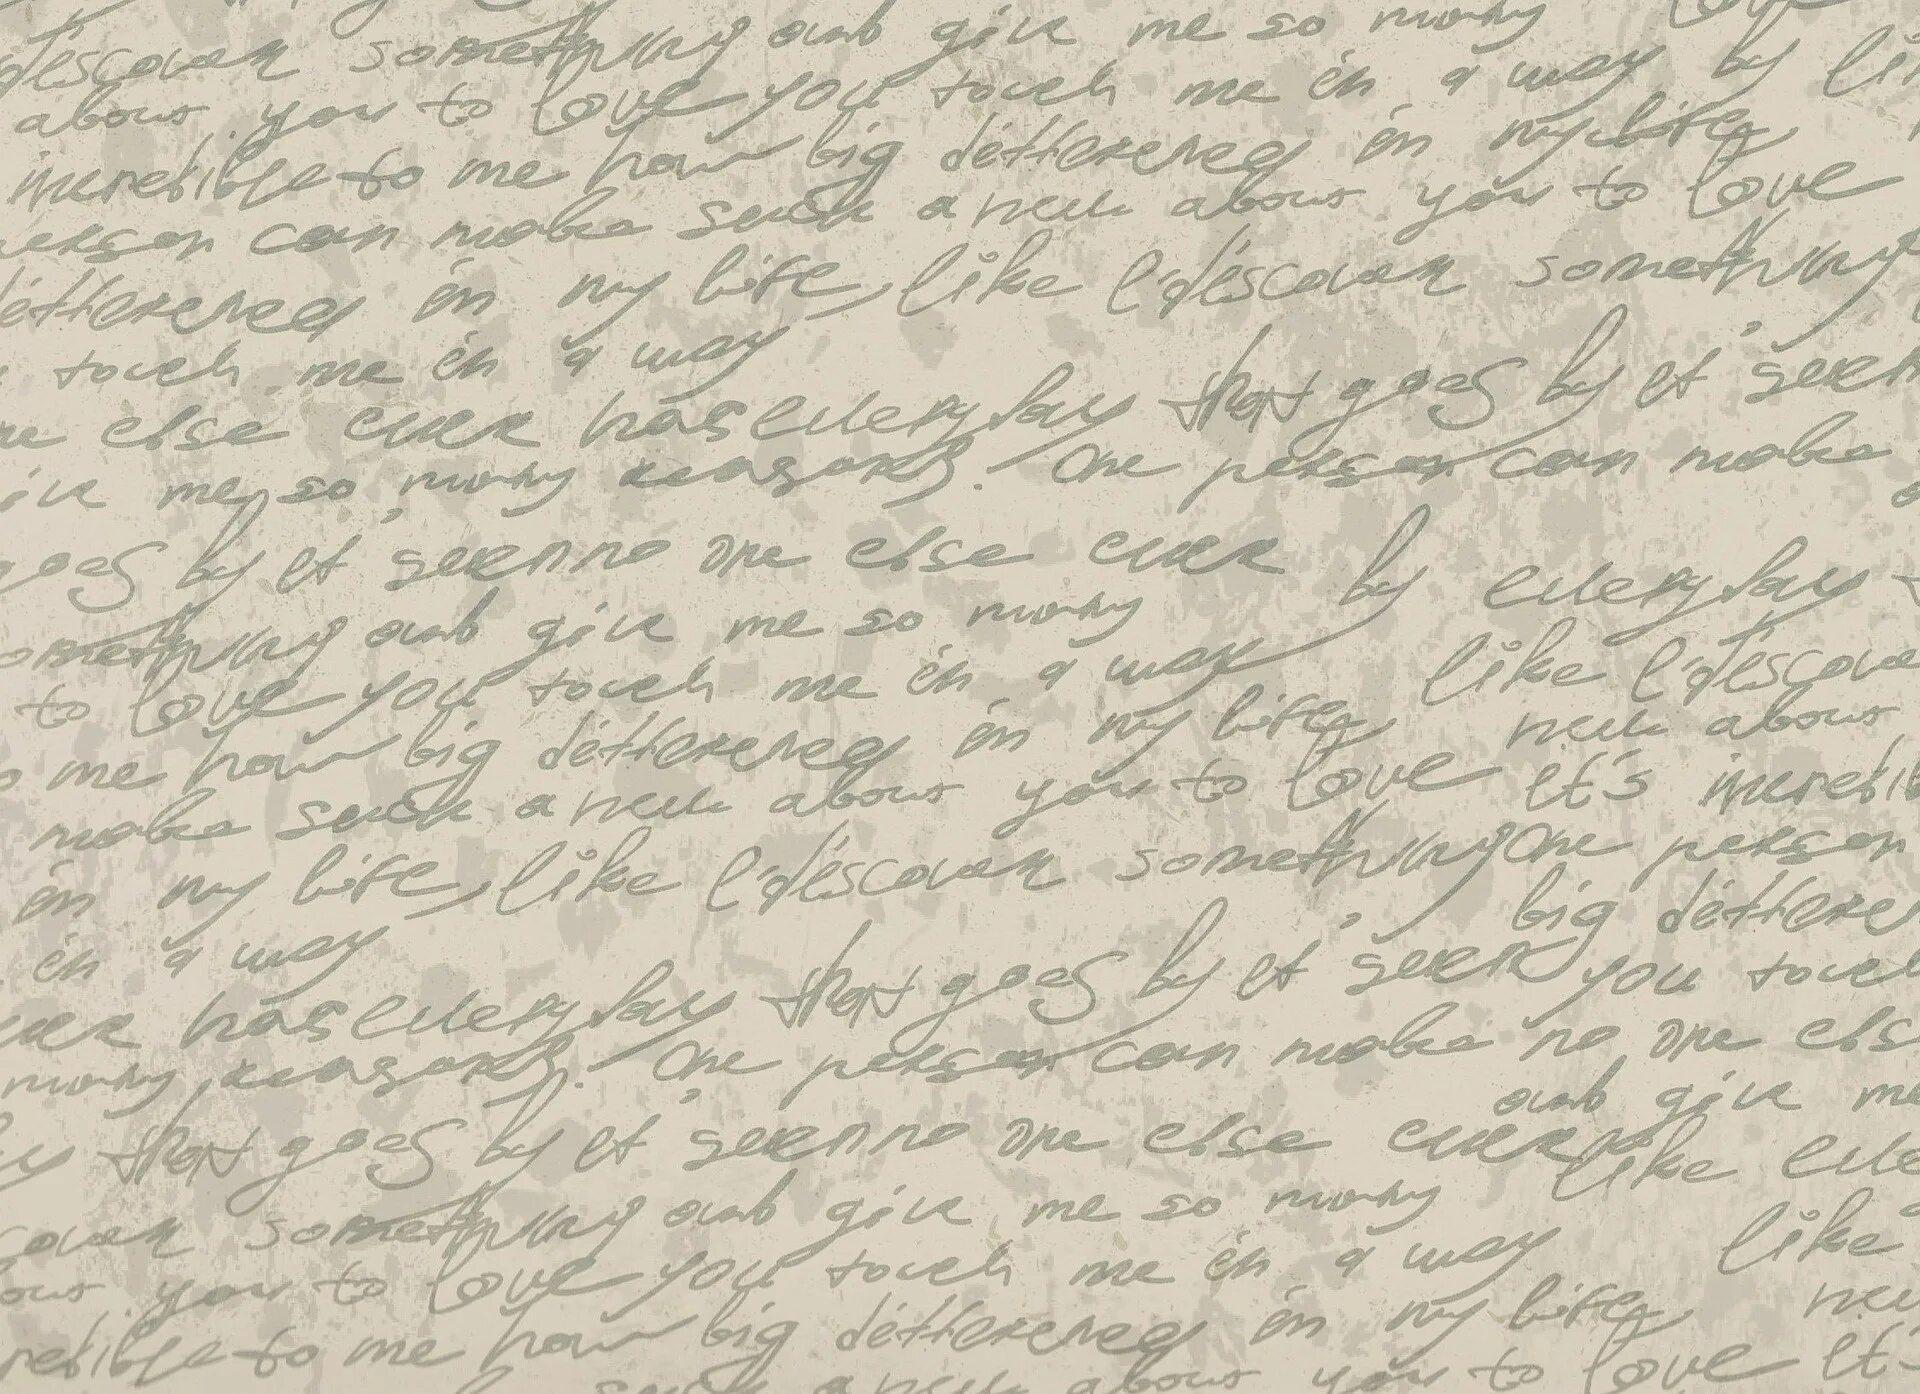 discover something and give me so many love
about you to love you touch me in a way by li
incredible to me how big difference in my life,
person can make such a new about you to love
difference in my life, like I discover something
touch me in a way
else ever has everyday that goes by it seem
give me so many reasons. One person can make
goes by it seem no one else ever by everyday
omething and give me so many
to love you touch me in a way like I discove
me how big difference in my life, new about
make such a new about you to love it's incredib
in my life, like I discover something One person
big differe
in a way
ever has everyday that goes by it seem you touch
many reasons. One person can make no one els
and give me
that goes by it seem no one else ever like eve
cover something and give me so many
you to love you touch me in a way like
redible to me how big difference in my life, new
such a new about you to love it's